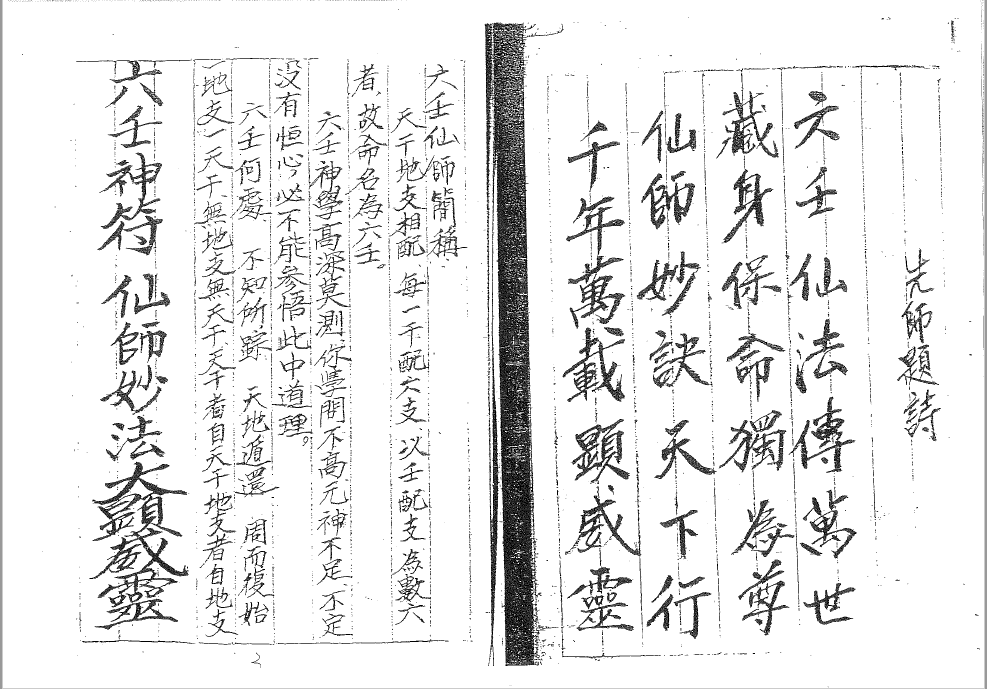 先師題詩
六壬仙法傳萬世
藏身保命獨為尊
仙師妙訣天下行
千年萬載顯威靈
六壬仙師簡稱
天干地支相配每一干配六支以壬配支為數六
者，故命名為六壬。
六壬神學高深莫測你學問不高元神不足不定
没有恒心必不能参悟此中道理。
六壬何處 不知所踪 天地循還 周而復始
地支一天干無地支無天干天干者自天干地支者自地支
六壬神符 仙師妙法大顯威靈
2